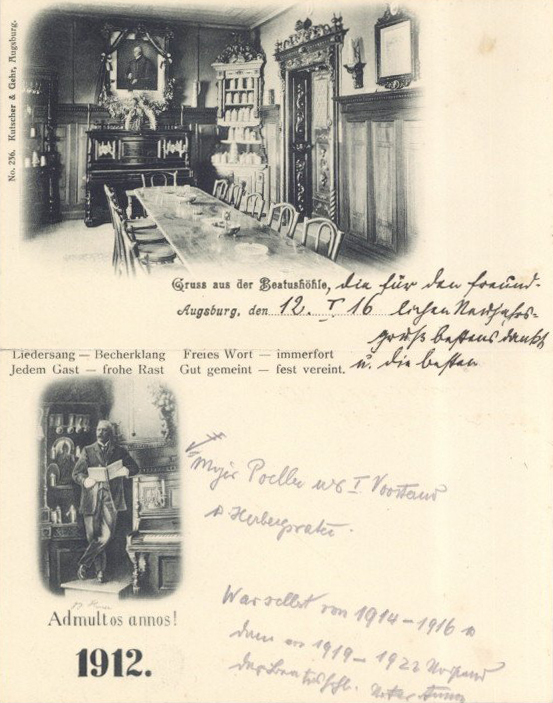 No. 236. Kutscher & Gehr, Augsburg.
Gruss aus der Beatushöhle, die für den freund-
Augsburg, den 12. I. 16 lichen Neujahrs-
gruß bestens dankt
u. die besten
Liedersang — Becherklang Freies Wort — immerfort
Jedem Gast — frohe Rast Gut gemeint — fest vereint.
I. Vorstand
War selbst von 1914–1916
dann 1919–1922 Vorstand
Ad multos annos!
1912.